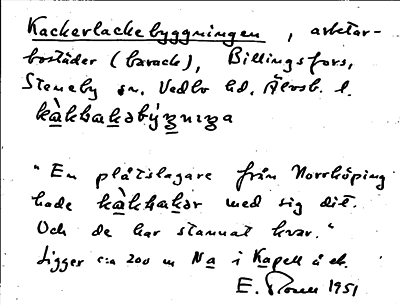 Kackerlackebyggningen, arbetar-
bostäder (barack), Billingsfors,
Steneby sn. Vedbo hd. Älvsb. l.
kàkhakəbýgnıŋa
"En plåtslagare från Norrköping
hade kàkhakər med sig dit.
Och de har stannat kvar."
Ligger c:a 200 m Na i Kapell å ek.
E. 1951